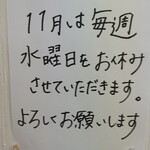 11月は毎週
水曜日をお休み
させていただきます。
よろしくお願いします